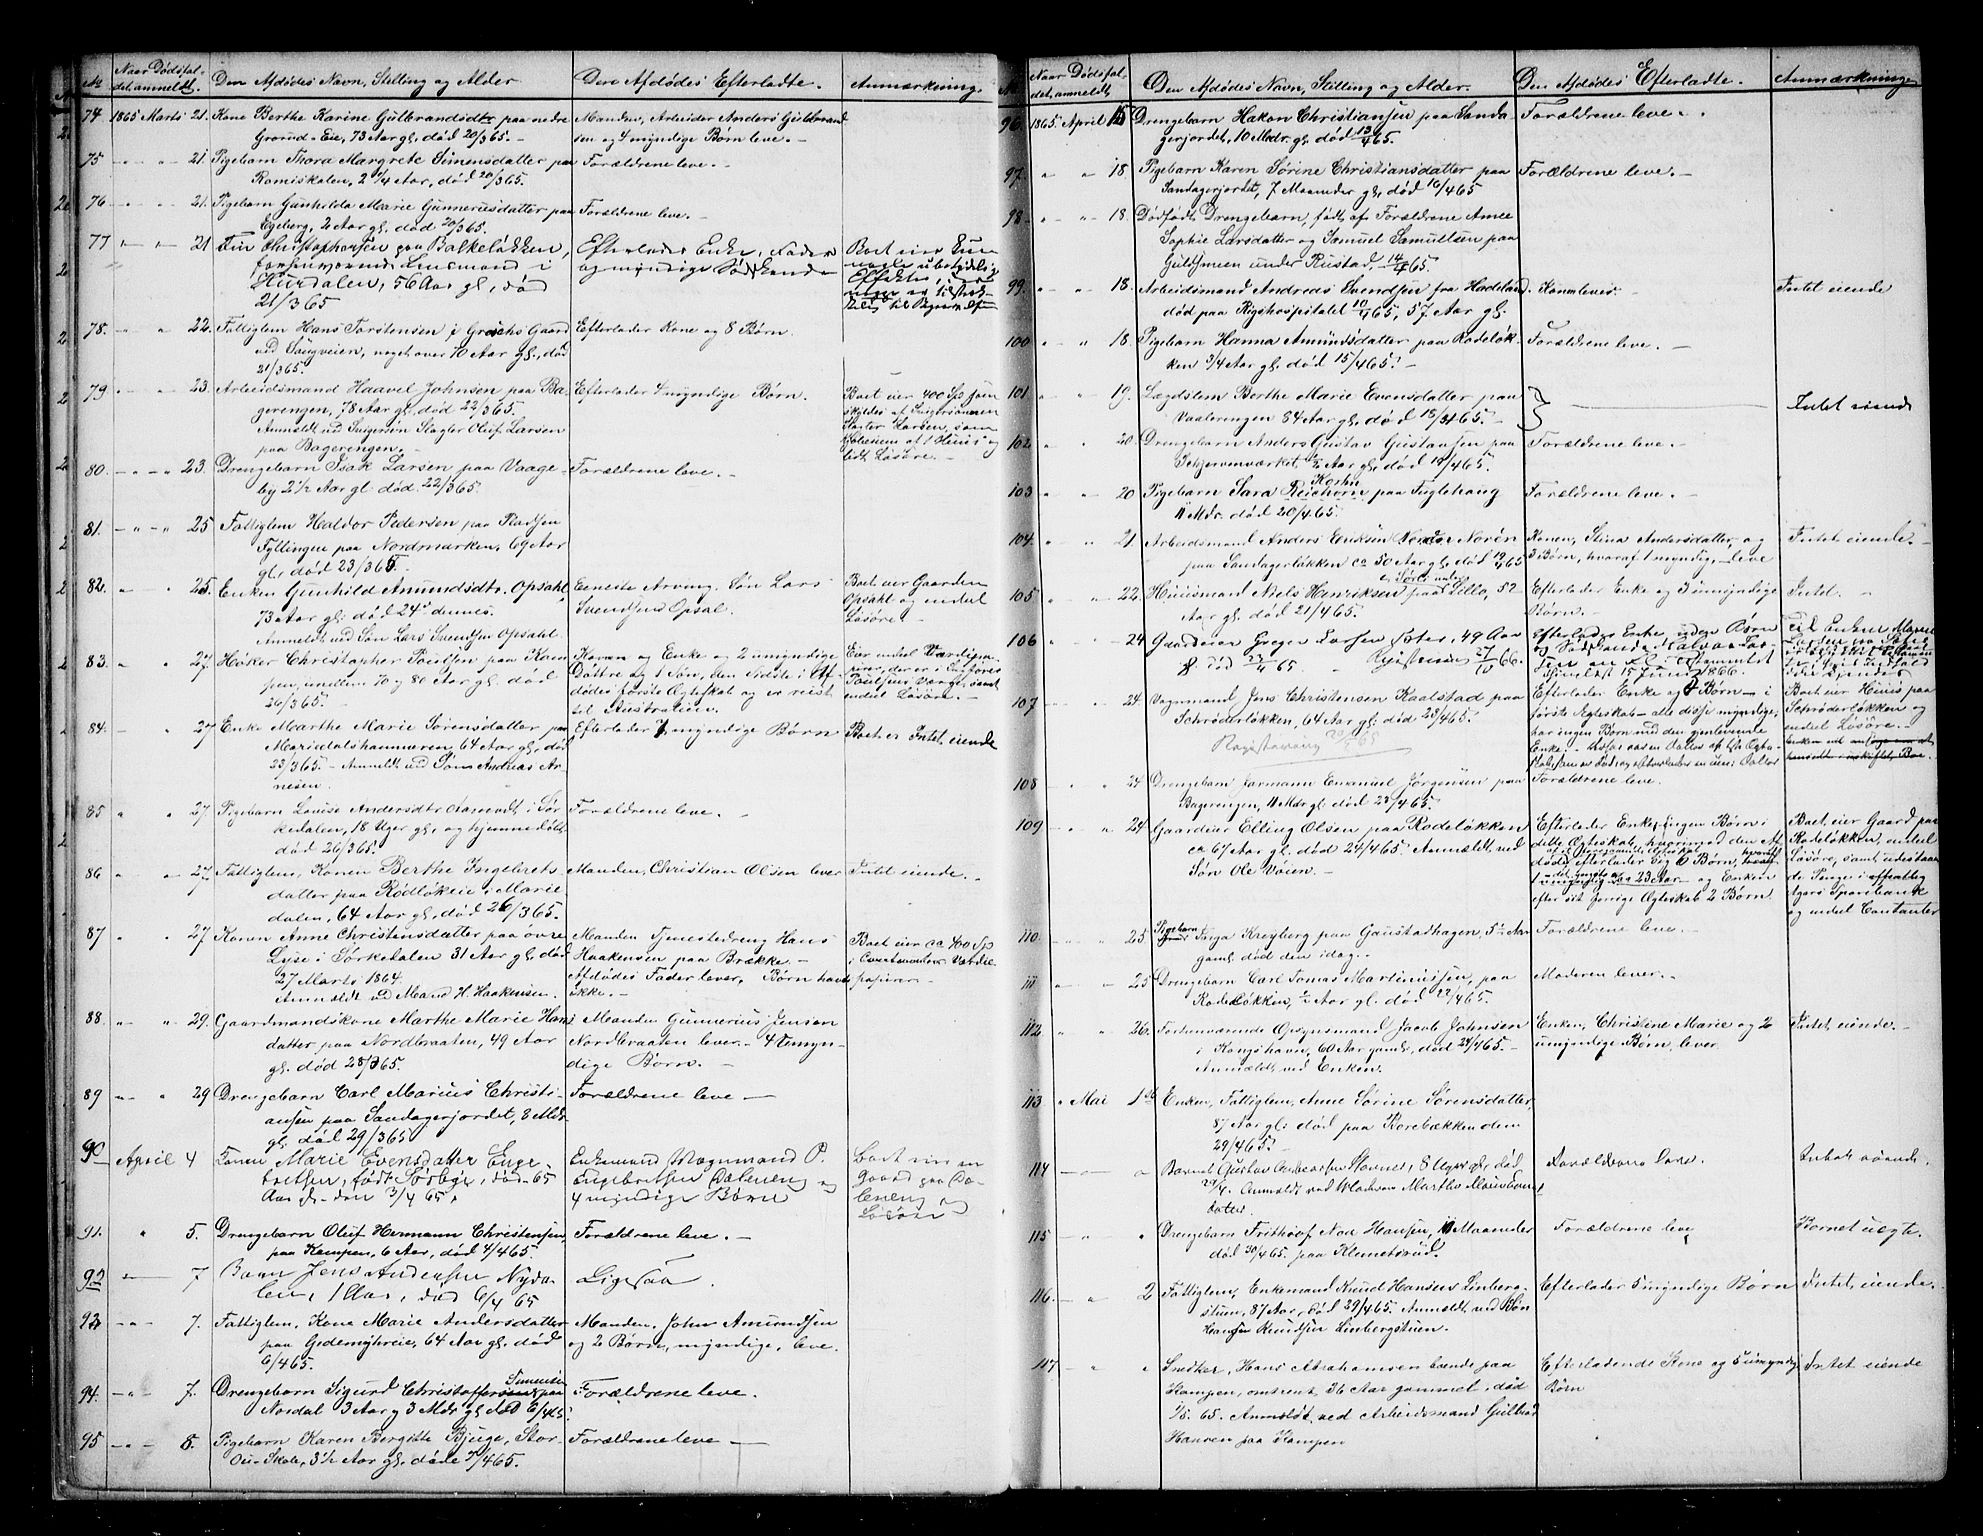 № Naar Dødsfal- Den Afdødes Navn, Stilling og Alder Den Afdødes Efterladte. Anmærkning.
det anmeldt.
74 1865 Marts 21. Kone Berthe Karine Gulbrandsdtr paa nedre Manden, Arbeider Anders Gulbrand
Grorud-Eie, 73 Aar gl, død 20/3 65. - sen og 4 myndige Børn leve. -
75 21. Pigebarn Thora Margrete Simensdatter paa Forældrene leve. -
Romiskolen, 2 1/4 Aar, død 20/3 65.
76 21. Pigebarn Gunhilda Marie Gunneriusdatter paa Forældrene leve. -
Egeberg, 2 Aar gl, død 20/3 65.
77 21 Christophersen paa Balkeløkken, Efterlader Enke, Fader
forhenværende Lensmand i og myndige Sødskende
Hurdalen, 56 Aar gl, død
21/3 65
Boet eier kun
ubetydelig
Effekter,
78. 22. Fattiglem Hans Torstensen i Grøschs Gaard Efterlader Kone og 8 Børn.
ved Sougveien, noget over 70 Aar gl, død
21/3 65.
79 23. Arbeidsmand Haavel Johnsen paa Ba- Efterlader 4 myndige Børn. Boet eier 400 Sp som
gerengen, 78 Aar gl, død 22/3 65. skyldes af Svigersønnen
Anmeldt ved Svigersøn Slagter Oluf Larsen Slagter Larsen, som
paa Bageringen. - Huus og
lidt Løsøre. -
80. 23. Drengebarn Isak Larsen paa Vaage- Forældrene leve. -
by 2 1/2 Aar gl død 22/3 65.
81. 25 Fattiglem Haldor Pedersen paa Pladsen
Fyllingen paa Nordmarken, 69 Aar
gl, død 23/3 65.
82. 25. Enken Gunhild Amundsdtr. Opsahl, Eneste Arving, Søn Lars Boet eier Gaarden
73 Aar gl, død 24de dennes. Svendsen Opsal. Opsahl og endeel
Anmeldt ved Søn Lars Svendsen Opsahl. Løsøre. -
83. 27. Høker Christopher Poulsen paa Kam- Konen og Enke og 2 umyndige Eier endel Værdipa-
pen, mellem 70 og 80 Aar gl. død Døttre og 1 Søn, den sidste i Af- pirer, der er i
26/3 65. dødes første Ægteskab og er reist Poulsens Værge, samt
til Australien. endeel Løsøre. -
84. 27 Enke Marthe Marie Sørensdatter paa Efterlader 7 myndige Børn Boet er Intet eiende
Maridalshammeren, 64 Aar gl, død
23/3 65. - Anmeldt ved Søn Andreas Ar-
nesen.
85 27 Pigebarn Louise Andersdtr Aamodt i Sør- Forældrene leve. -
kedalen, 18 Uger gl, og hjemmedøbt
død 26/3 65.
86 27. Fattiglem, Konen Berthe Ingebrets Manden, Christian Olsen lever Intet eiende. -
datter paa Rødløkeie i Marie
dalen, 64 Aar gl, død 26/3 65.
87 27 Konen Anne Christensdatter paa øvre Manden Tjenestedreng Hans Boet eier ca 400 Sp
Lyse i Sørkedalen 31 Aar gl, død Haakensen paa Brække. - i Værdie-
27 Marts 1864. Afdødes Fader lever, Børn havdes papirer. -
Anmeldt ved Mand H. Haakensen. ikke. -
88. 29. Gaardmandskone Marthe Marie Hans Manden Gunnerius Jensen
datter paa Nordbraaten, 49 Aar Nordbraaten lever. - 4 Umyn-
gl. død 28/3 65. dige Børn. -
89 29 Drengebarn Carl Marius Christi- Forældrene leve -
ansen paa Sandagerjordet, 8 Mdr
gl, død 29/3 65
90 April 4 Konen Marie Evensdatter Enge- Enkemand Vognmand P. Boet eier en
bretsen, født Sørbye, død 65 Engebretsen Dæleneng og Gaard paa Dæ-
Aar gl. den 3/4 65. 4 myndige Børn leneng og
Løsøre
91. 5. Drengebarn Oluf Hermann Christensen Forældrene leve. -
paa Kampen, 6 Aar, død 4/4 65.
92 7 Barn Jens Andersen Nyda- Ligesaa.
len, 1 Aar, død 6/4 65
93 7. Fattiglem, Kone Marie Andersdatter Manden, John Amundsen
paa Gedemyhreie, 64 Aar gl, død og 2 Børn, myndige, leve.
6/4 65.
94. 7. Drengebarn Sigurd Christoffersen Simensen paa Forældrene leve.
Nordal 3 Aar og 3 Mdr gl, død 6/4 65
95 8. Pigebarn Karen Bergitte Bjuge, Stor- Forældrene leve -
Ous Skole, 3 1/2 Aar gl, døde 7/4 65.
Naar Dødsfal- Den Afdødes Navn, Stilling og Alder. Den Afdødes Efterladte. Anmærkninger
det anmeldt
96. 1865 April 15 Drengebarn Hakon Christiansen paa Sanda Forældrene leve. -
gerjordet, 10 Mdr. gl, død 13/4 65.
97. 18. Pigebarn Karen Sørine Christiansdatter paa Forældrene leve. -
Sandagerjordet, 7 Maaneder gl, død 16/4 65
98 18. Dødfødt Drengebarn, født af Forældrene Anne
Sophie Larsdatter og Samuel Samuelsen paa
Guldsmeen under Rustad, 14/4 65.
99. 18. Arbeidsmand Andreas Svendsen fra Hadeland, Kone lever. - Intet eiende
død paa Rigshospitalet 10/4 65, 57 Aar gl.
100 18. Pigebarn Hanna Amundsdatter paa Rodeløk- Forældrene leve. -
ken 3/4 Aar gl, død 15/4 65. -
101 19. Lægdslem Berthe Marie Evensdatter paa Intet eiende
Vaaleringen 84 Aar gl, død 18/4 65.
102. 20. Drengebarn Anders Gustav Gustavsen paa Forældrene leve. -
Schjervenværket, 1/2 Aar gl, død 19/4 65.
103 20 Pigebarn Sara Reichorn Korhn paa Fuglehaug Forældrene leve. -
11 Mdr. død 20/4 65.
104. 21. Arbeidsmand Anders Eriksen Norén Konen, Stina Andersdatter, og Intet eiende. -
paa Sandagerløkken ca 50 Aar gl. død 19/4 65 3 Børn, hvoraf 1 myndig, leve
105 22. Huusmand Niels Henriksen paa Lillo, 52 Efterlader Enke og 3 umyndige Intet. -
Aar gl. død 21/4 65. Børn. -
106 24 Gaardeier Greger Larsen Sæter, 49 Aar Efterlader Enke, uden Børn
gl død 23/4 65. Registrering 27/10 66. og Sødskende
15 Juni 1866. Enken Marie
107 24. Vognmand Jens Christensen Kaalstad paa Efterlader Enke og 7 Børn - i Boet eier Huus paa
Schrøderløkken, 64 Aar gl, død 23/4 65. første Ægteskab - alle disse myndige; Schrøderløkken og
Registrering 20/5 65 har ingen Børn med den gjenlevende endeel Løsøre. -
Enke.
108 24 Drengebarn Jørmann Emanuel Jørgensen paa Forældrene leve.
Bageringen, 11 Mdr gl, død 23/4 65.
109 24 Gaardeier Elling Olsen paa Rodeløkken Efterlader Enke, ingen Børn i Boet eier Gaard paa
ca 67 Aar gl. død 24/4 65. Anmeldt ved dette Ægteskab, Rodeløkken, endeel
Søn Ole Voien. døde efterlader sig 6 Børn, Løsøre, samt udestaaen
23 Aar - og Enken de Penge i
efter sit forrige Ægteskab 2 Børn Agers Sparebank
og endeel Contanter
110. 25. Pigebarn Inga Kreyberg paa Gaustadhagen, 5 1/2 Aar Forældrene leve. -
gaml, død den idag. -
111 25 Drengebarn Carl Tomas Martiniussen, paa Moderen lever. -
Rodeløkken, 1/2 Aar gl, død 22/4 65.
112 26. Forhenværende Opsynsmand Jacob Johnsen Enken, Christine Marie og 2 Intet eiende. -
i Kongshavn, 60 Aar gaml, død 24/4 65. - umyndige Børn, lever.
Anmeldt ved Enken.
113 Mai 1ste Enken, Fattiglem, Anne Sørine Sørensdatter,
87 Aar gl, død paa Korebækken den
29/4 65.
114 Barnet Gustav Stovner, 8 Uger gl, død, Forældrene leve. Intet eiende.
29/4. Anmeldt ved Marthe
datter
115 Drengebarn Frithiof Nod Hansen, 11 Maaneder Forældrene leve, Barnet uægte.
død 30/4 65. paa Klemetsrud.
116. 2 Fattiglem, Enkemand Knud Hansen Linberg- Efterlader 5 myndige Børn Intet eiende. -
stuen, 87 Aar, død 29/4 65. Anmeldt ved Søn
Hans Knudsen Linbergstuen.
117 Snedker, Hans Abrahamsen boende paa Efterladende Kone og 5 umyndige Intet eiende
Kampen, omtrent 36 Aar gammel, død Børn
1/5. 65. Anmeldt ved Arbeidsmand Gulbrand
Hansen paa Kampen